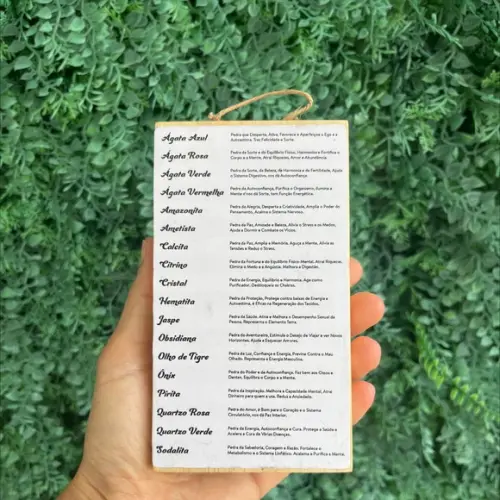 Ágata Azul
Pedra que Desperta, Ativa, Favorece e Aperfeiçoa o Ego e a
Autoestima. Dus Felicidade e Sorte.
Ágata Rosa
Pedra da Sorte e do Equilíbrio Físico, Harmoniza e Fortifica o
Corpo e a Mente. Atrai Riquezas, Amor e Abundância.
Ágata Verde
Pedra da Sorte, da Beleza, da Harmonia e da Fertilidade, Ajuda
o Sistema Digestivo, voz de Autoconfiança.
Ágata Vermelha
Pedra da Autoconfiança, Purifica o Organismo, Ilumina a
Mente e voz da Sorte, tem Função Energética.
Amazonita
Pedra da Alegria, Desperta a Criatividade, Amplia o Poder do
Pensamento, Acalma o Sistema Nervoso.
Ametista
Pedra da Paz, Amizade e Beleza, Alivia o Stress e os Medos,
Ajuda a Dormir e Combate os Vícios.
Calcita
Pedra da Paz, Amplia a Memória, Aguça a Mente, Alivia as
Tensões e Reduz o Stress.
Citrino
Pedra da Fortuna e do Equilíbrio Físico-Mental, Atrai Riquezas,
Elimina o Medo e a Angústia. Melhora a Digestão.
Cristal
Pedra da Energia, Equilíbrio e Harmonia. Age como
Purificador, Desbloqueia os Chakras.
Hematita
Pedra da Proteção, Protege contra baixas de Energia e
Autoestima, é Eficaz na Regeneração dos Tecidos.
Jaspe
Pedra da Saúde, Alivia e Melhora o Desempenho Sexual da
Pessoa. Representa o Elemento Terra.
Obsidiana
Pedra do Aventureiro, Estimula o Desejo de Viajar e ver Novos
Horizontes. Ajuda a Esquecer Amores.
Olho de Tigre
Pedra da Luz, Confiança e Energia, Previne Contra o Mau
Olhado. Representa a Energia Masculina.
Ônix
Pedra do Poder e da Autoconfiança. Faz bem aos Ossos e
Dentes. Equilibra o Corpo e a Mente.
Pirita
Pedra da Inspiração, Melhora a Capacidade Mental, Atrai
Dinheiro para quem a usa. Reduz a Ansiedade.
Quartzo Rosa
Pedra do Amor, é Bom para o Coração e o Sistema
Circulatório, voz da Paz Interior.
Quartzo Verde
Pedra da Energia, Autoconfiança e Cura. Protege a Saúde e
Acelera a Cura de Várias Doenças.
Sodalita
Pedra da Sabedoria, Coragem e Razão. Fortalece o
Metabolismo e o Sistema Linfático. Acalma e Purifica a Mente.